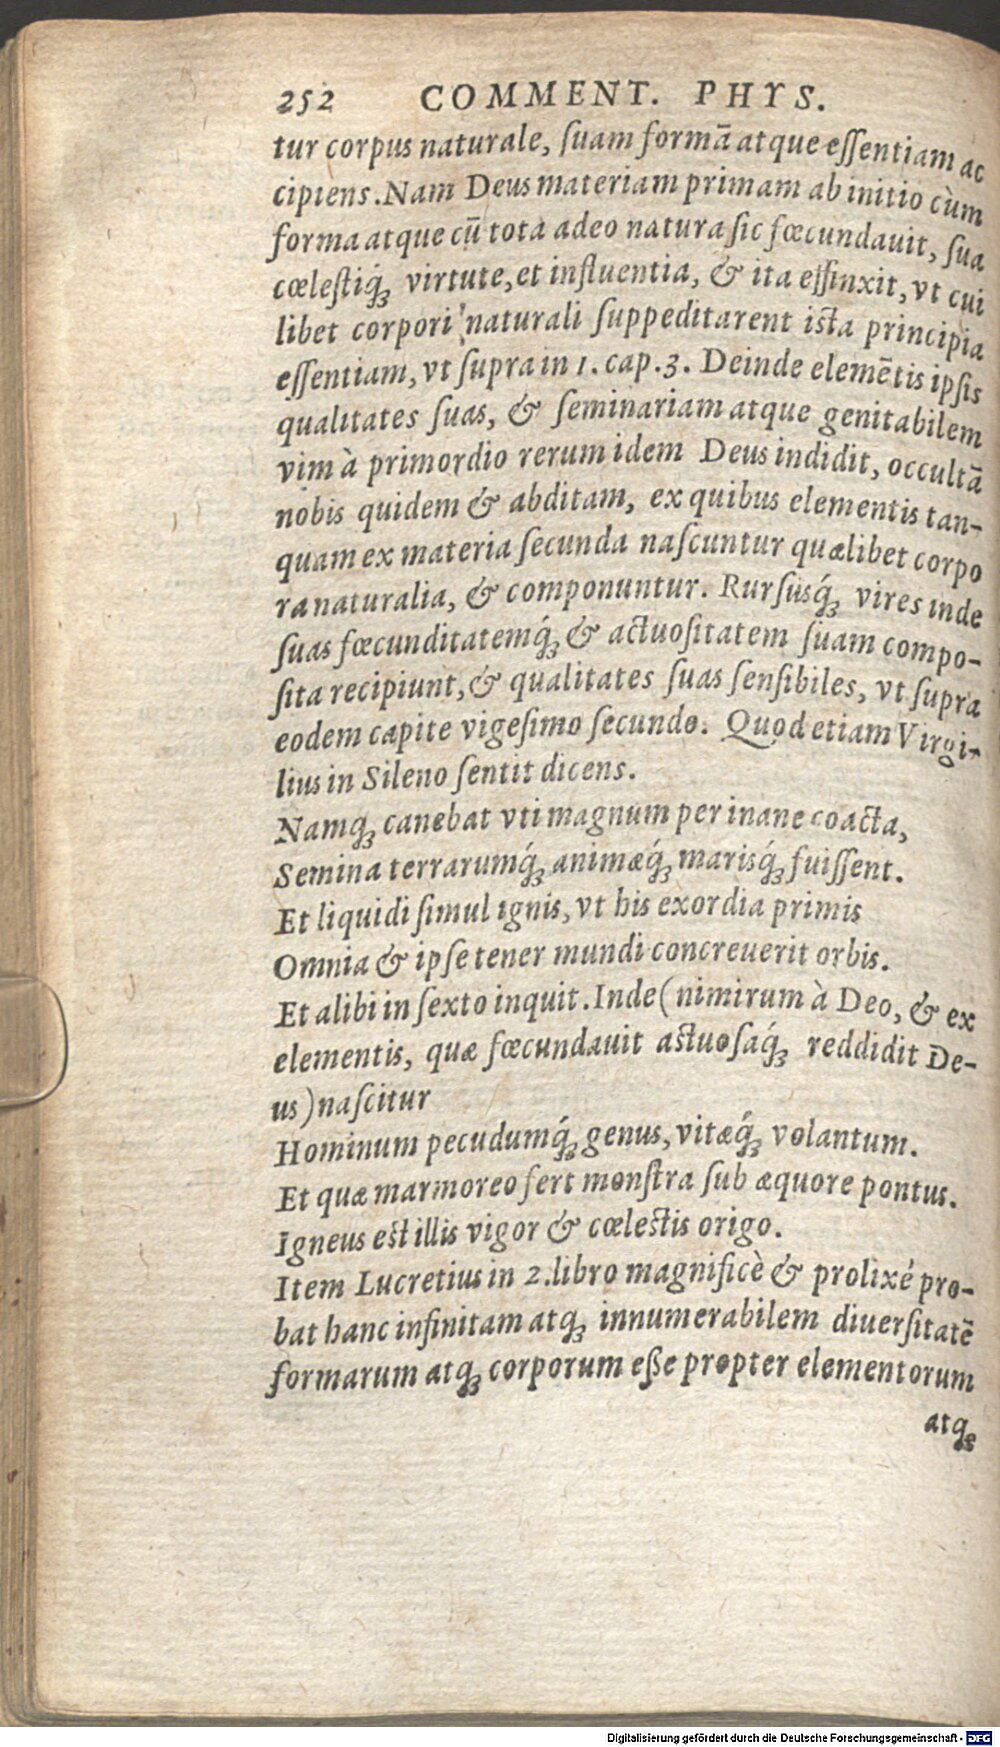 252 COMMENT. PHYS.
tur corpus naturale, ſuam formā atque eſſentiam ac
cipiens. Nam Deus materiam primam ab initio cùm
forma atque cū tota adeo natura ſic fœcundauit, ſua
cœleſtiq́ꝫ virtute, et influentia, & ita effinxit, vt cui
libet corpori naturali ſuppeditarent iſta principia
eſſentiam, vt ſupra in 1. cap. 3. Deinde elemētis ipſis
qualitates ſuas, & ſeminariam atque genitabilem
vim à primordio rerum idem Deus indidit, occultā
nobis quidem & abditam, ex quibus elementis tan-
quam ex materia ſecunda naſcuntur quælibet corpo
ra naturalia, & componuntur. Rurſusq́ꝫ vires inde
ſuas fœcunditatemq́ꝫ & actuoſitatem ſuam compo-
ſita recipiunt, & qualitates ſuas ſenſibiles, vt ſupra
eodem capite vigeſimo ſecundo. Quod etiam Virgi-
lius in Sileno ſentit dicens.
Namqꝫ canebat vti magnum per inane coacta,
Semina terrarumq́ꝫ animæq́ꝫ marisq́ꝫ fuiſſent.
Et liquidi ſimul ignis, vt his exordia primis
Omnia & ipſe tener mundi concreuerit orbis.
Et alibi in ſexto inquit. Inde (nimirum à Deo, & ex
elementis, quæ fœcundauit actuoſaq́ꝫ reddidit De-
us) naſcitur
Hominum pecudumq́ꝫ genus, vitæq́ꝫ volantum.
Et quæ marmoreo fert monſtra ſub æquore pontus.
Igneus eſt illis vigor & cœleſtis origo.
Item Lucretius in 2. libro magnificè & prolixé pro-
bat hanc infinitam atqꝫ innumerabilem diuerſitatē
formarum atqꝫ corporum eße propter elementorum
atqꝫ
Digitalisierung gefördert durch die Deutsche Forschungsgemeinschaft - DFG